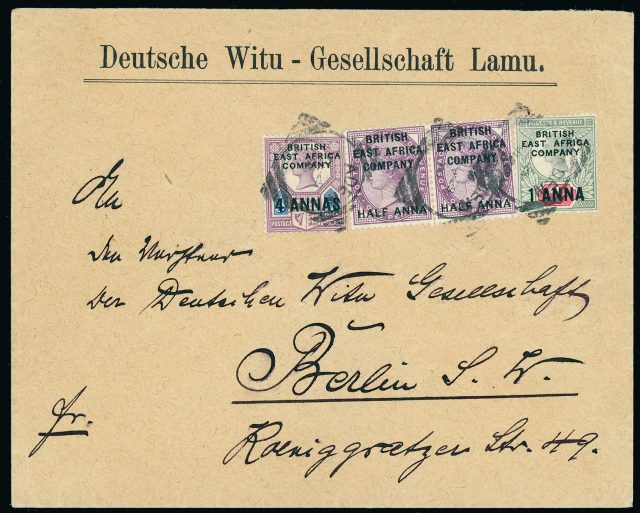 Deutsche Witu - Gesellschaft Lamu.
BRITISH
EAST AFRICA
COMPANY
4 ANNAS
POSTAGE
BRITISH
EAST AFRICA
COMPANY
HALF ANNA
BRITISH
EAST AFRICA
COMPANY
HALF ANNA
POSTAGE & REVENUE
BRITISH
EAST AFRICA
COMPANY
1 ANNA
An
den Vorstand
der Deutschen Witu Gesellschaft
Berlin S. W.
fr.
Koeniggratzer Str. 49.